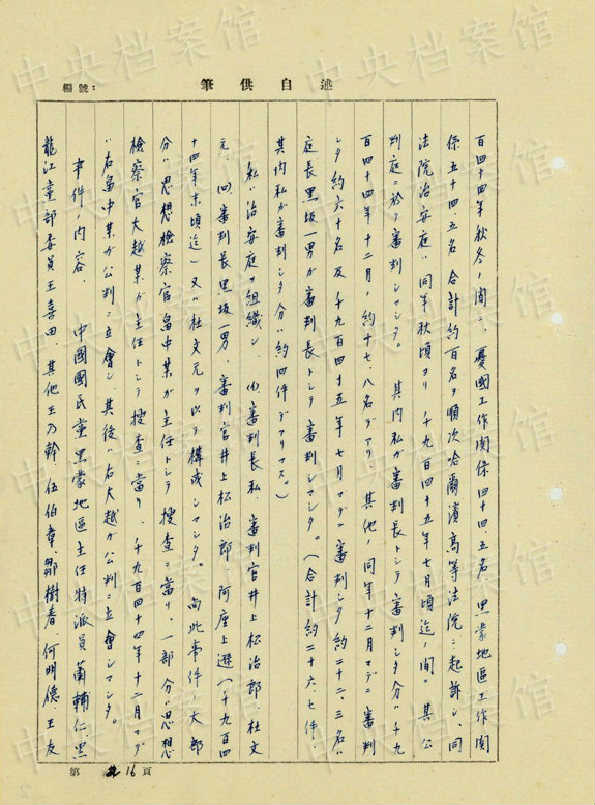 編號：
述自供筆
百四十四年秋冬ノ間ニ、憂國工作関係四十四五名、黒蒙地區工作関
係五十四、五名、合計約百名ヲ順次哈爾濱高等法院ニ起訴シ、同
法院治安庭ハ同年秋頃ヨリ千九百四十五年七月頃迄ノ間、其公
判庭ニ於テ審判シマシタ。其内私ガ審判長トシテ審判シタ分ハ千九
百四十四年十二月ノ約十七、八名デアリ、其他ノ同年十二月マデニ審判
シタ約六十名及千九百四十五年七月マデニ審判シタ約二十二、三名ハ
庭長黒坂一男ガ審判長トシテ審判シマシタ。（合計約二十六、七件、
其内私ガ審判シタ分ハ約四件デアリマス。）
私ハ治安庭ヲ組織シ、(イ)審判長私、審判官井上松治郎、杜文
元、(ロ)審判長黒坂一男、審判官井上松治郎、阿座上遜（千九百四
十四年末頃迄）又ハ杜文元ヲ以テ構成シマシタ。尚此事件ノ大部
分ハ思想検察官畠中某ガ主任トシテ搜查ニ當リ、一部分ハ思想
検察官大越某ガ主任トシテ搜查ニ當リ、千九百四十四年十二月マデ
ハ右畠中某ガ公判ニ立會シ、其後ハ右大越ガ公判ニ立會シマシタ。
事件ノ内容、中國國民党黒蒙地區主任特派員蘭輔仁、黒
龍江党部委員王喜田、其他王乃幹、伍伯韋、鄒樹春、何明德、王友
第 16 頁
中央档案馆